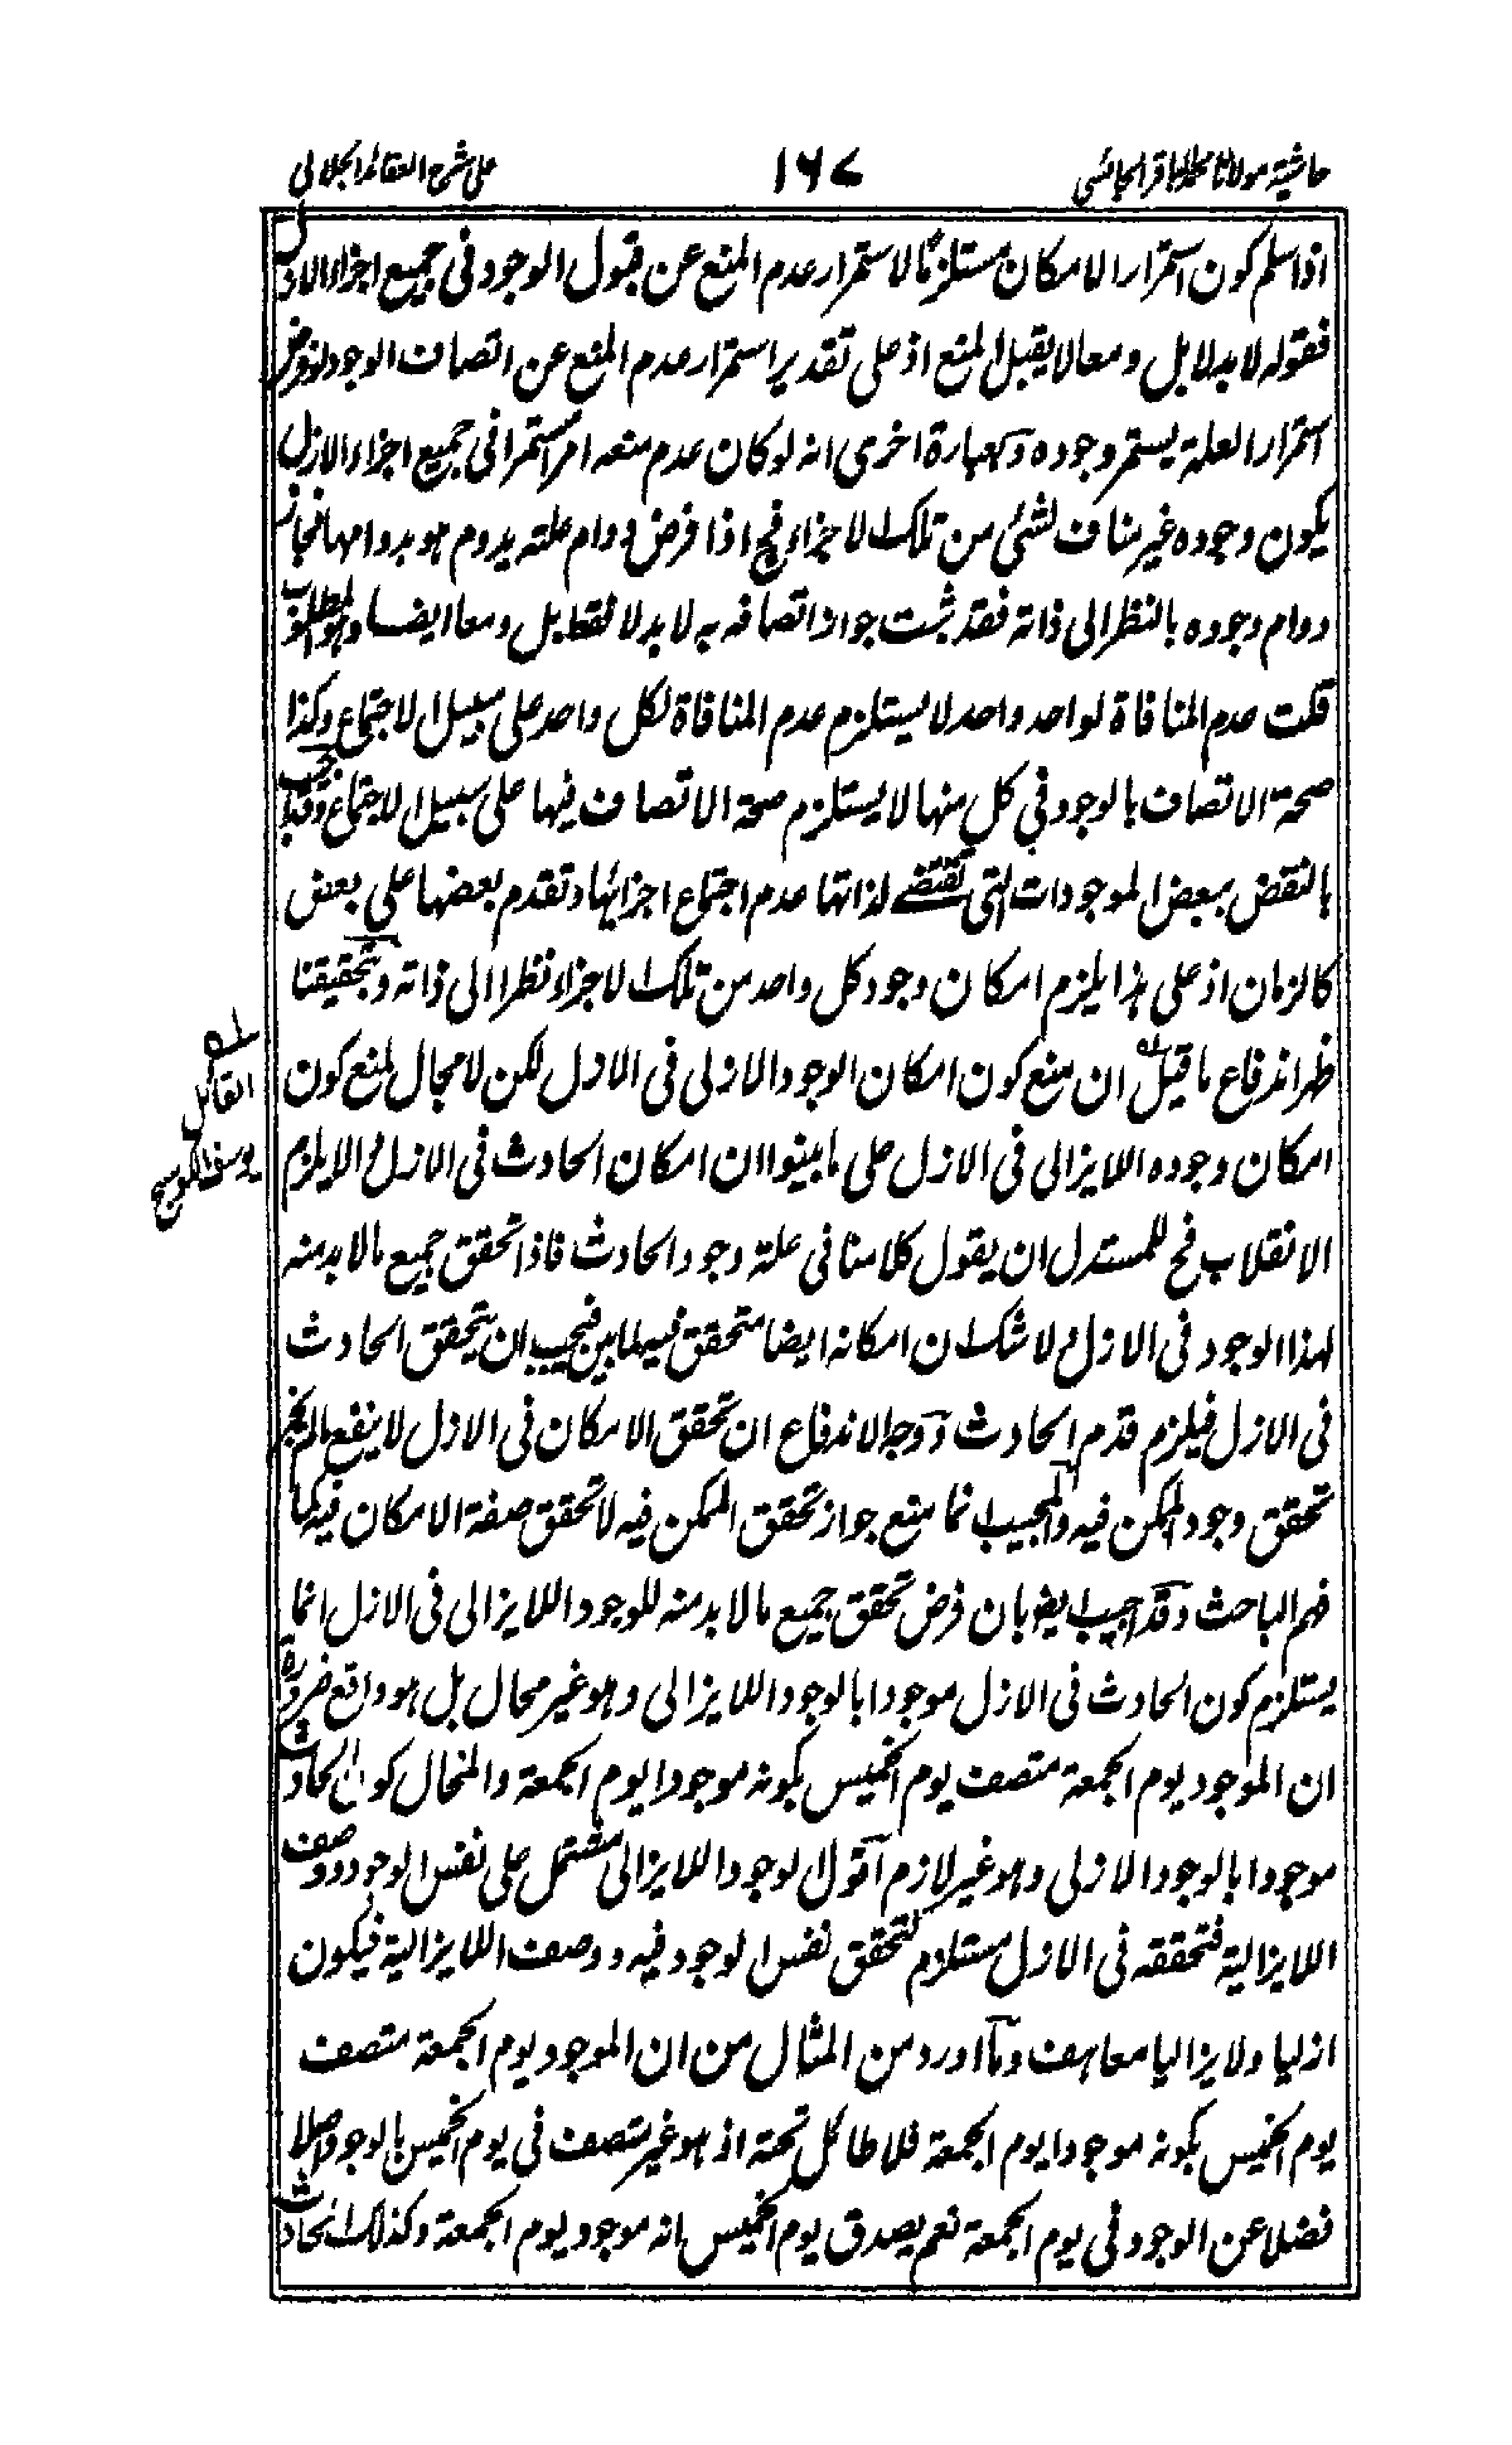 حاشية مولانا محمد الباقر الجائسى
١٦٧
على شرح العقائد الجلالى
اذا سلم كون استمرار الامكان مستلزمًا لاستمرار عدم المنع عن قبول الوجود فى جميع اجزاء الازل
فقوله لا بدلا بل ومعا لا يقبل المنع اذ على تقدير استمرار عدم المنع عن اتصاف الوجود لو فرض
استمرار العلة يستمر وجوده وبعبارة اخرى انه لو كان عدم منعه امرا مستمرا فى جميع اجزاء الازل
يكون وجوده غير مناف لشئ من تلك الاجزاء فح اذا فرض دوام علته يدوم هو بدوامها فجاز
دوام وجوده بالنظر الى ذاته فقد ثبت جواز اتصافه به لا بدلا فقط بل ومعا ايضا وهو المطلوب
قلت عدم المنافاة لواحد واحد لا يستلزم عدم المنافاة لكل واحد على سبيل الاجتماع وكذا
صحة الاتصاف بالوجود فى كل منها لا يستلزم صحة الاتصاف فيها على سبيل الاجتماع وقد يجب
بالنقض ببعض الموجودات التى تقتضى لذاتها عدم اجتماع اجزائها وتقدم بعضها على بعض
كالزمان اذ على هذا يلزم امكان وجود كل واحد من تلك الاجزاء نظرا الى ذاته وبتحقيقنا
ظهر اندفاع ما قيل له ان منع كون امكان الوجود الازلى فى الازل لكن لا مجال لمنع كون
امكان وجوده اللايزالى فى الازل على ما بينوا ان امكان الحادث فى الازل والا يلزم
الانقلاب فح للمستدل ان يقول كلامنا فى علة وجود الحادث فاذا تحقق جميع ما لا بد منه
لهذا الوجود فى الازل ولا شك ان امكانه ايضا متحقق فيه لما بين فيجب ان يتحقق الحادث
فى الازل فيلزم قدم الحادث ووجه الاندفاع ان تحقق الامكان فى الازل لا ينفع ما لم يجز
تحقق وجود الممكن فيه والمجيب انما منع جواز تحقق الممكن فيه لا تحقق صفة الامكان فيه كما
فهم الباحث وقد اجيب ايضا بان فرض تحقق جميع ما لا بد منه للوجود اللايزالى فى الازل انما
يستلزم كون الحادث فى الازل موجودا بالوجود اللايزالى وهو غير محال بل هو واقع ضرورة
ان الموجود يوم الجمعة متصف يوم الخميس بكونه موجودا يوم الجمعة والمحال كون الحادث
موجودا بالوجود الازلى وهو غير لازم اقول الوجود اللايزالى مشتمل على نفس الوجود ووصف
اللايزالية فتحققه فى الازل مستلزم لتحقق نفس الوجود فيه ووصف اللايزالية فيكون
ازليا ولايزاليا معا هف وما اورد من المثال من ان الموجود يوم الجمعة متصف
يوم الخميس بكونه موجودا يوم الجمعة فلا طائل تحته اذ هو غير متصف فى يوم الخميس بالوجود اصلا
فضلا عن الوجود فى يوم الجمعة نعم يصدق يوم الخميس انه موجود يوم الجمعة وكذلك الحادث
له
القائل
يوسف الكوسج